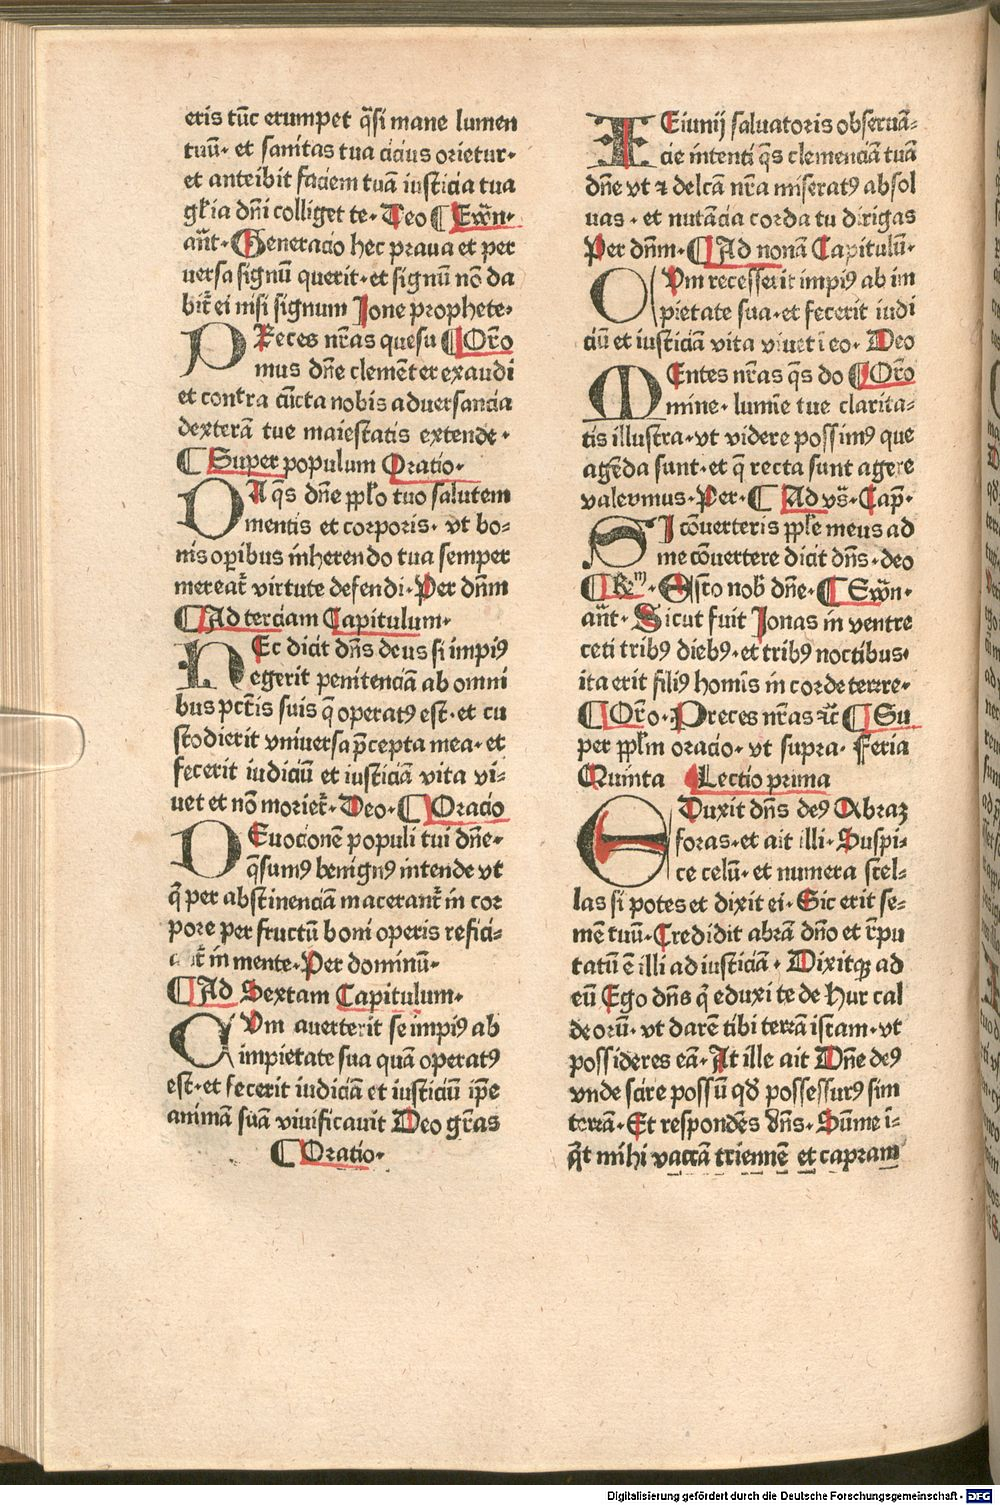 eris tūc erumpet q̄si mane lumen
tuū· et sanitas tua cicius orietur·
et anteibit faciem tuā iusticia tua
gl̄ia dn̄i colliget te· Deo ¶ Ewn̄·
an̄t· Generacio hec praua et per
uersa signū querit· et signū nō da
bit̄ ei nisi signum Jone prophete·
PReces nr̄as quesu ¶ Oro
mus dn̄e clemēter exaudi
et contra cūcta nobis aduersancia
dexterā tue maiestatis extende·
¶ Super populum Oratio·
DA q̄s dn̄e ppl̄o tuo salutem
mentis et corporis· vt bo=
nis oꝑibus inherendo tua semper
mereat̄ virtute defendi· Per dn̄m
¶ Ad terciam Capitulum·
HEc dicit dn̄s deus si impiꝰ
egerit penitenciā ab omni
bus pctīs suis q̄ operatꝰ est· et cu
stodierit vniuersa p̄cepta mea· et
fecerit iudiciū et iusticiā vita vi=
uet et nō moriet̄· Deo· ¶ Oracio
DEuocionē populi tui dn̄e·
q̄sumꝰ benignꝰ intende vt
q̄ per abstinenciā macerant̄ in cor
pore per fructū boni operis refici=
at̄ in mente· Per dominū·
¶ Ad Sextam Capitulum·
CVm auerterit se impiꝰ ab
impietate sua quā operatꝰ
est· et fecerit iudiciā et iusticiū ip̄e
animā suā viuificauit Deo gr̄as
¶ Oratio·
IEiunij saluatoris obseruā=
cie intenti q̄s clemenciā tuā
dn̄e vt ⁊ delcā nr̄a miseratꝰ absol
uas· et nutācia corda tu dirigas
Per dn̄m· ¶ Ad nonā Capitulū·
CVm recesserit impiꝰ ab im
pietate sua· et fecerit iudi
ciū et iusticiā vita viuet i eo· Deo
MEntes nr̄as q̄s do ¶ Oro
mine· lumīe tue clarita=
tis illustra· vt videre possimꝰ que
agēda sunt· et q̄ recta sunt agere
valeomus· Per· ¶ Ad vs̄· Cap̄·
SI cōuerteris ppl̄e meus ad
me cōuertere dicit dn̄s· deo
¶ R̄m Esto nob̄ dn̄e· ¶ Ewn̄·
an̄t· Sicut fuit Jonas in ventre
ceti tribꝰ diebꝰ· et tribꝰ noctibus·
ita erit filiꝰ homīs in corde terrre·
¶ Or̄o· Preces nr̄as ⁊c̄ ¶ Su
per ppl̄m oracio· vt supra· Feria
Quinta Lectio prima
EDuxit dn̄s deꝰ Abraꝫ
foras· et ait illi· Suspi=
ce celū· et numera stel=
las si potes et dixit ei· Sic erit se=
mē tuū· Credidit abrā dn̄o et r̄pu
tatū ē illi ad iusticiā· Dixitqꝫ ad
eū Ego dn̄s q̄ eduxi te de Hur cal
deorū· vt darē tibi terrā istam· vt
possideres eā· At ille ait Dn̄e deꝰ
vnde scire possū qđ possessurꝰ sim
terrā· Et respondēs dn̄s· Sūme ī=
q̄t mihi vaccā triennē et capram
Digitalisierung gefördert durch die Deutsche Forschungsgemeinschaft - DFG